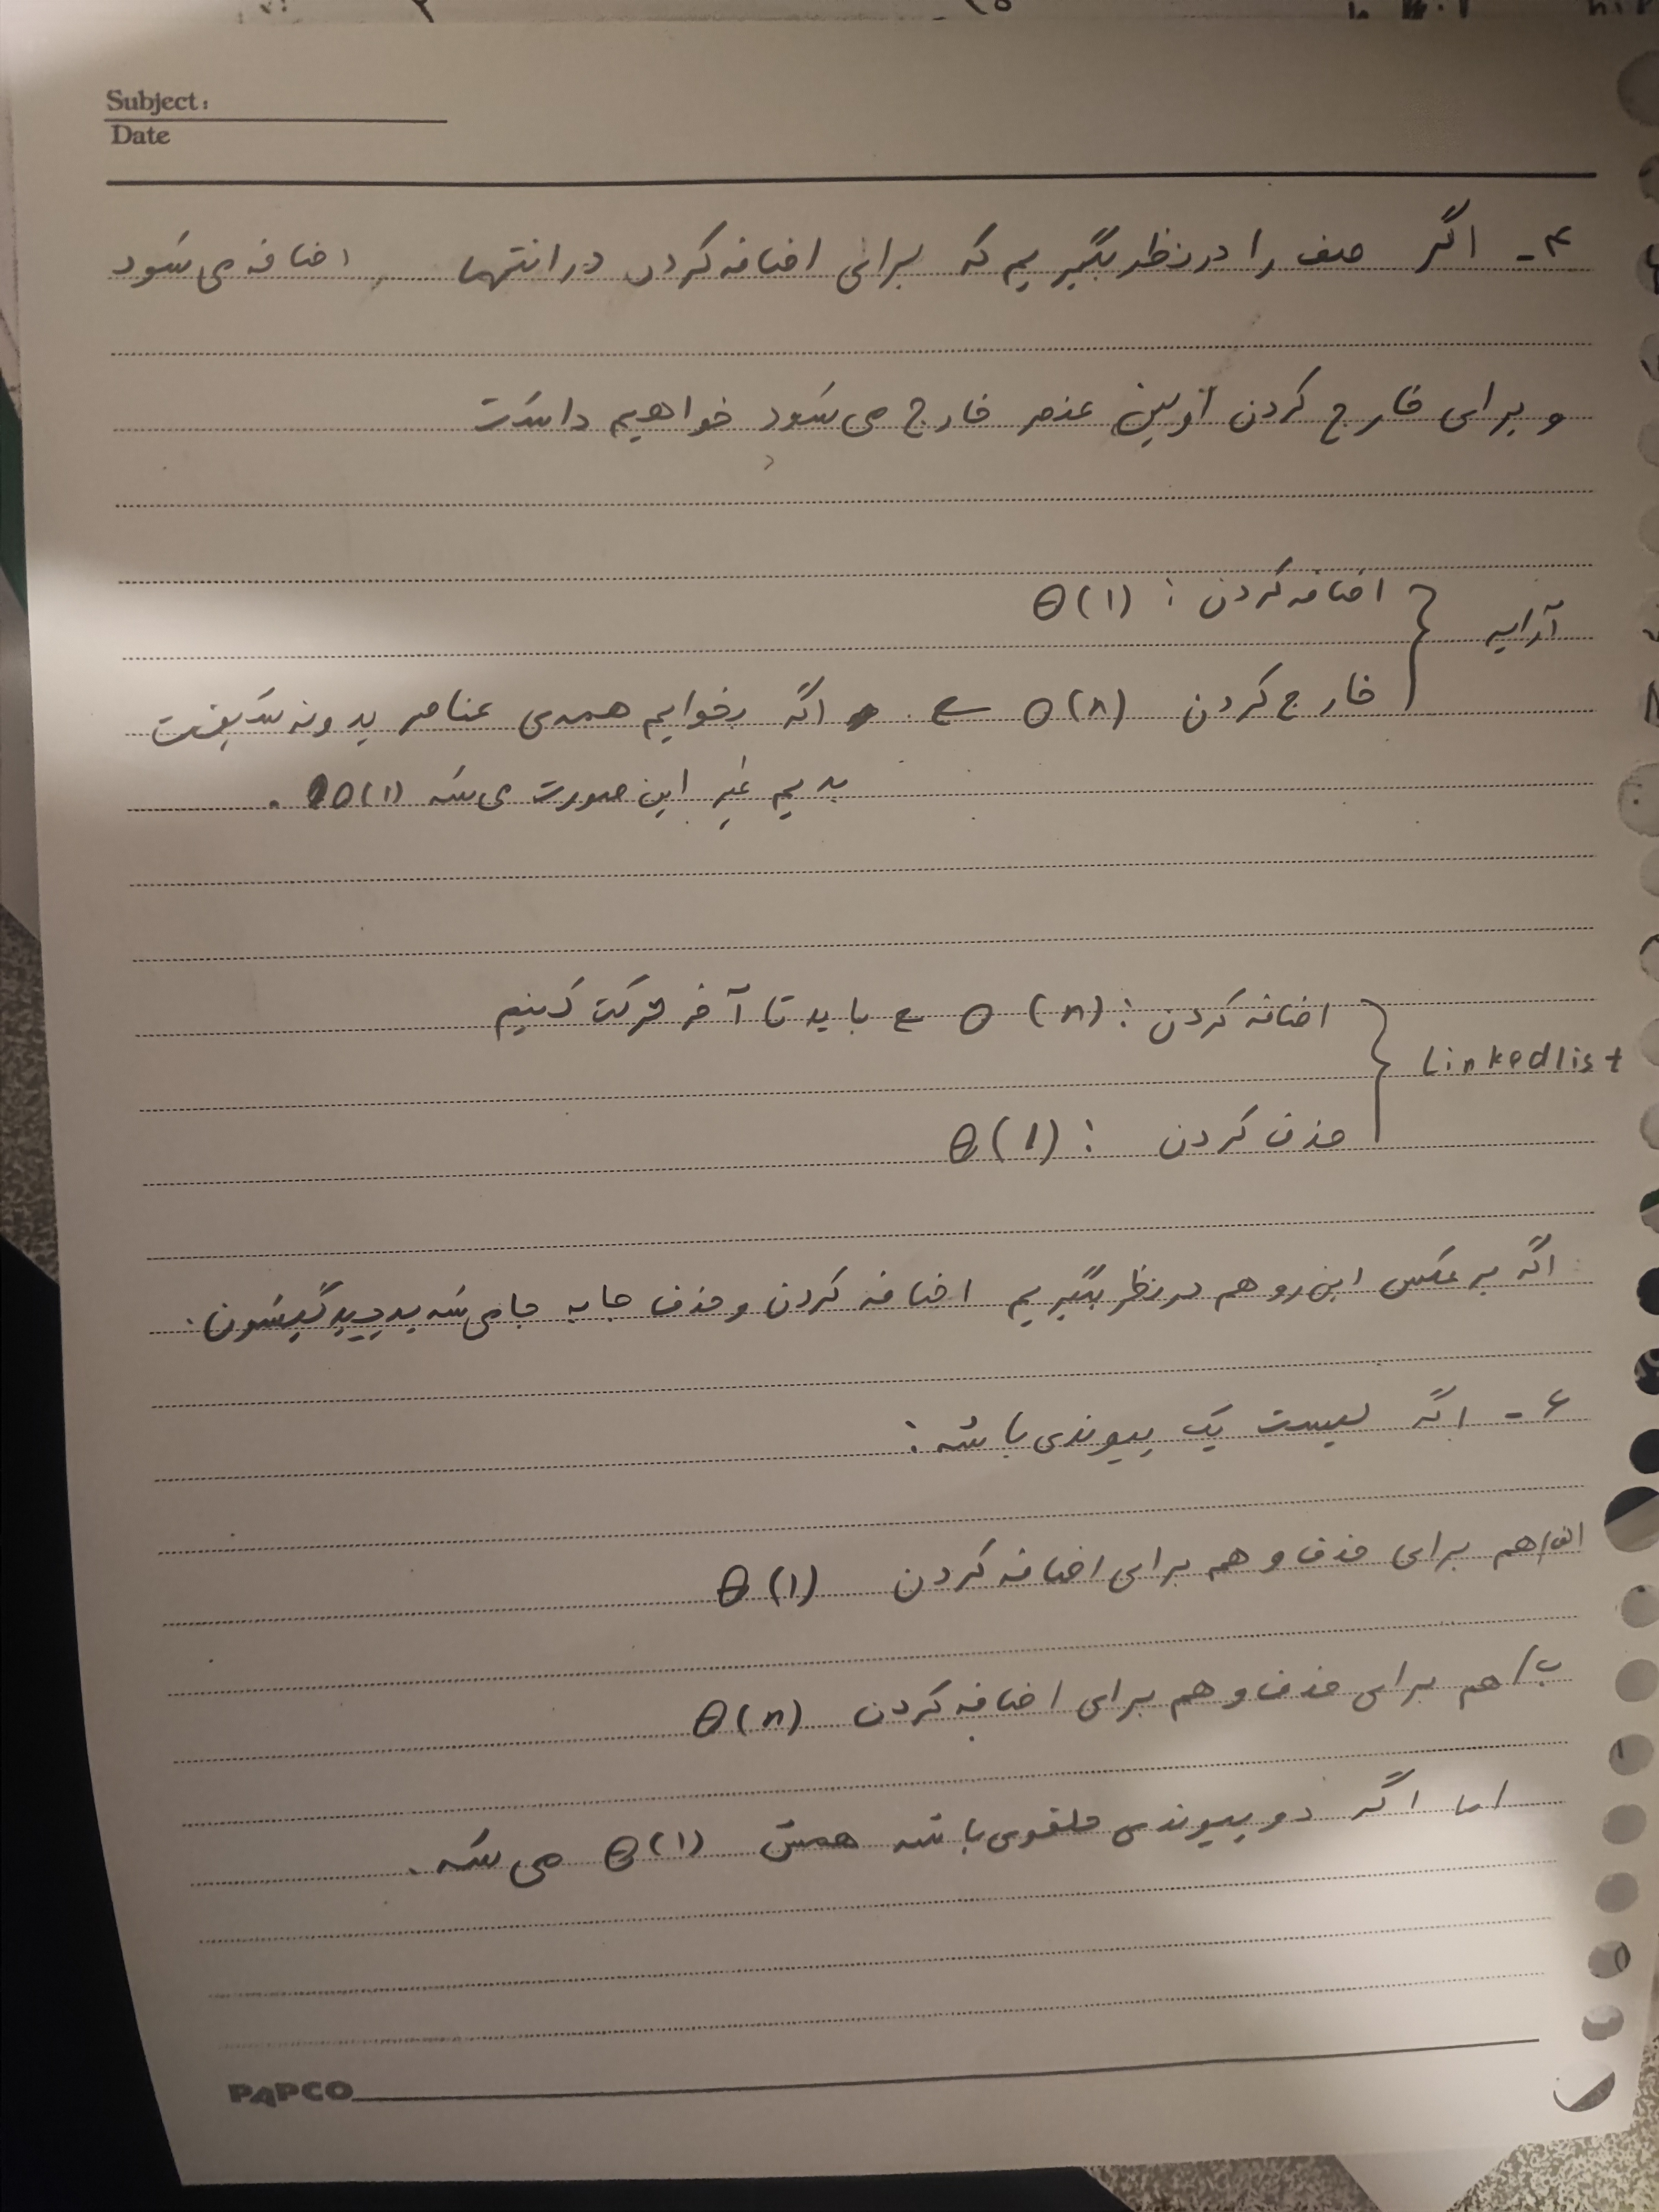 Subject:
Date
۴- اگر صف را در نظر بگیریم که برای اضافه کردن در انتها اضافه می شود
و برای خارج کردن اولین عنصر خارج می شود خواهیم داشت
آرایه
اضافه کردن : θ(1)
خارج کردن θ(n) ← اگه بخوایم همه ی عناصر یدونه شیفت
بدیم غیر این صورت می شه θ(1) .
Linkedlist
اضافه کردن : θ(n) ← باید تا آخر حرکت کنیم
حذف کردن : θ(1)
اگه برعکس این رو هم در نظر بگیریم اضافه کردن و حذف جا به جا می شه پیچیدگیشون.
۶- اگه لیست یک پیوندی باشه :
الف) هم برای حذف و هم برای اضافه کردن θ(1)
ب) هم برای حذف و هم برای اضافه کردن θ(n)
اما اگر دو پیوندی حلقوی باشه همش θ(1) می شه .
PAPCO